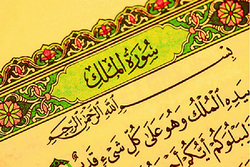 سُورَةُ المُلْكِ
بِسْمِ اللَّهِ الرَّحْمَٰنِ الرَّحِيمِ
بِيَدِهِ الْمُلْكُ وَهُوَ عَلَىٰ كُلِّ شَيْءٍ
لِيَبْلُوَكُمْ أَيُّكُمْ